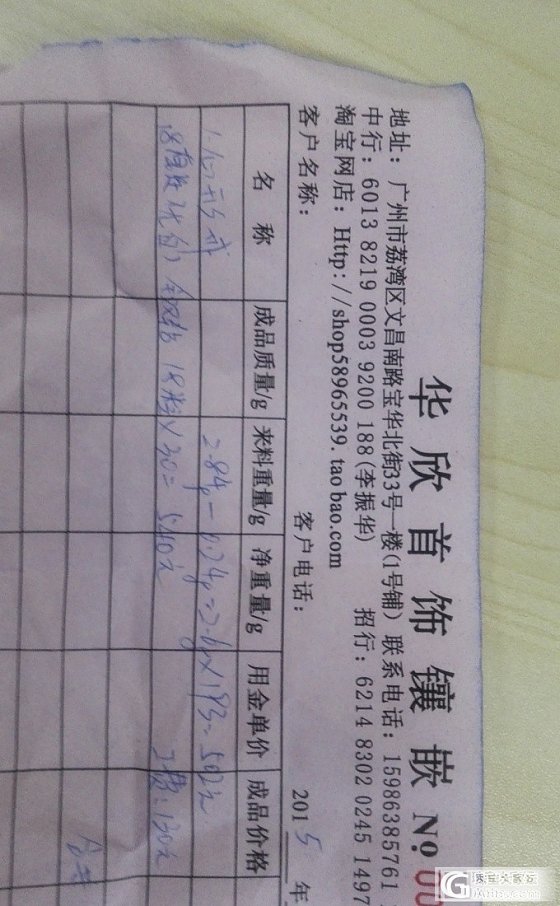 华欣首饰镶嵌 №
地址：广州市荔湾区文昌南路宝华北街33号一楼(1号铺) 联系电话：15986385761
中行：6013 8219 0003 9200 188(李振华) 招行：6214 8302 0245 1497
淘宝网店：Http://shop58965539.taobao.com
客户名称： 客户电话： 2015年
名称 成品质量/g 来料重量/g 净重量/g 用金单价 成品价格
2.84g-0.24g=2.6g×193=502元
18粒×30=540元 工费：130元